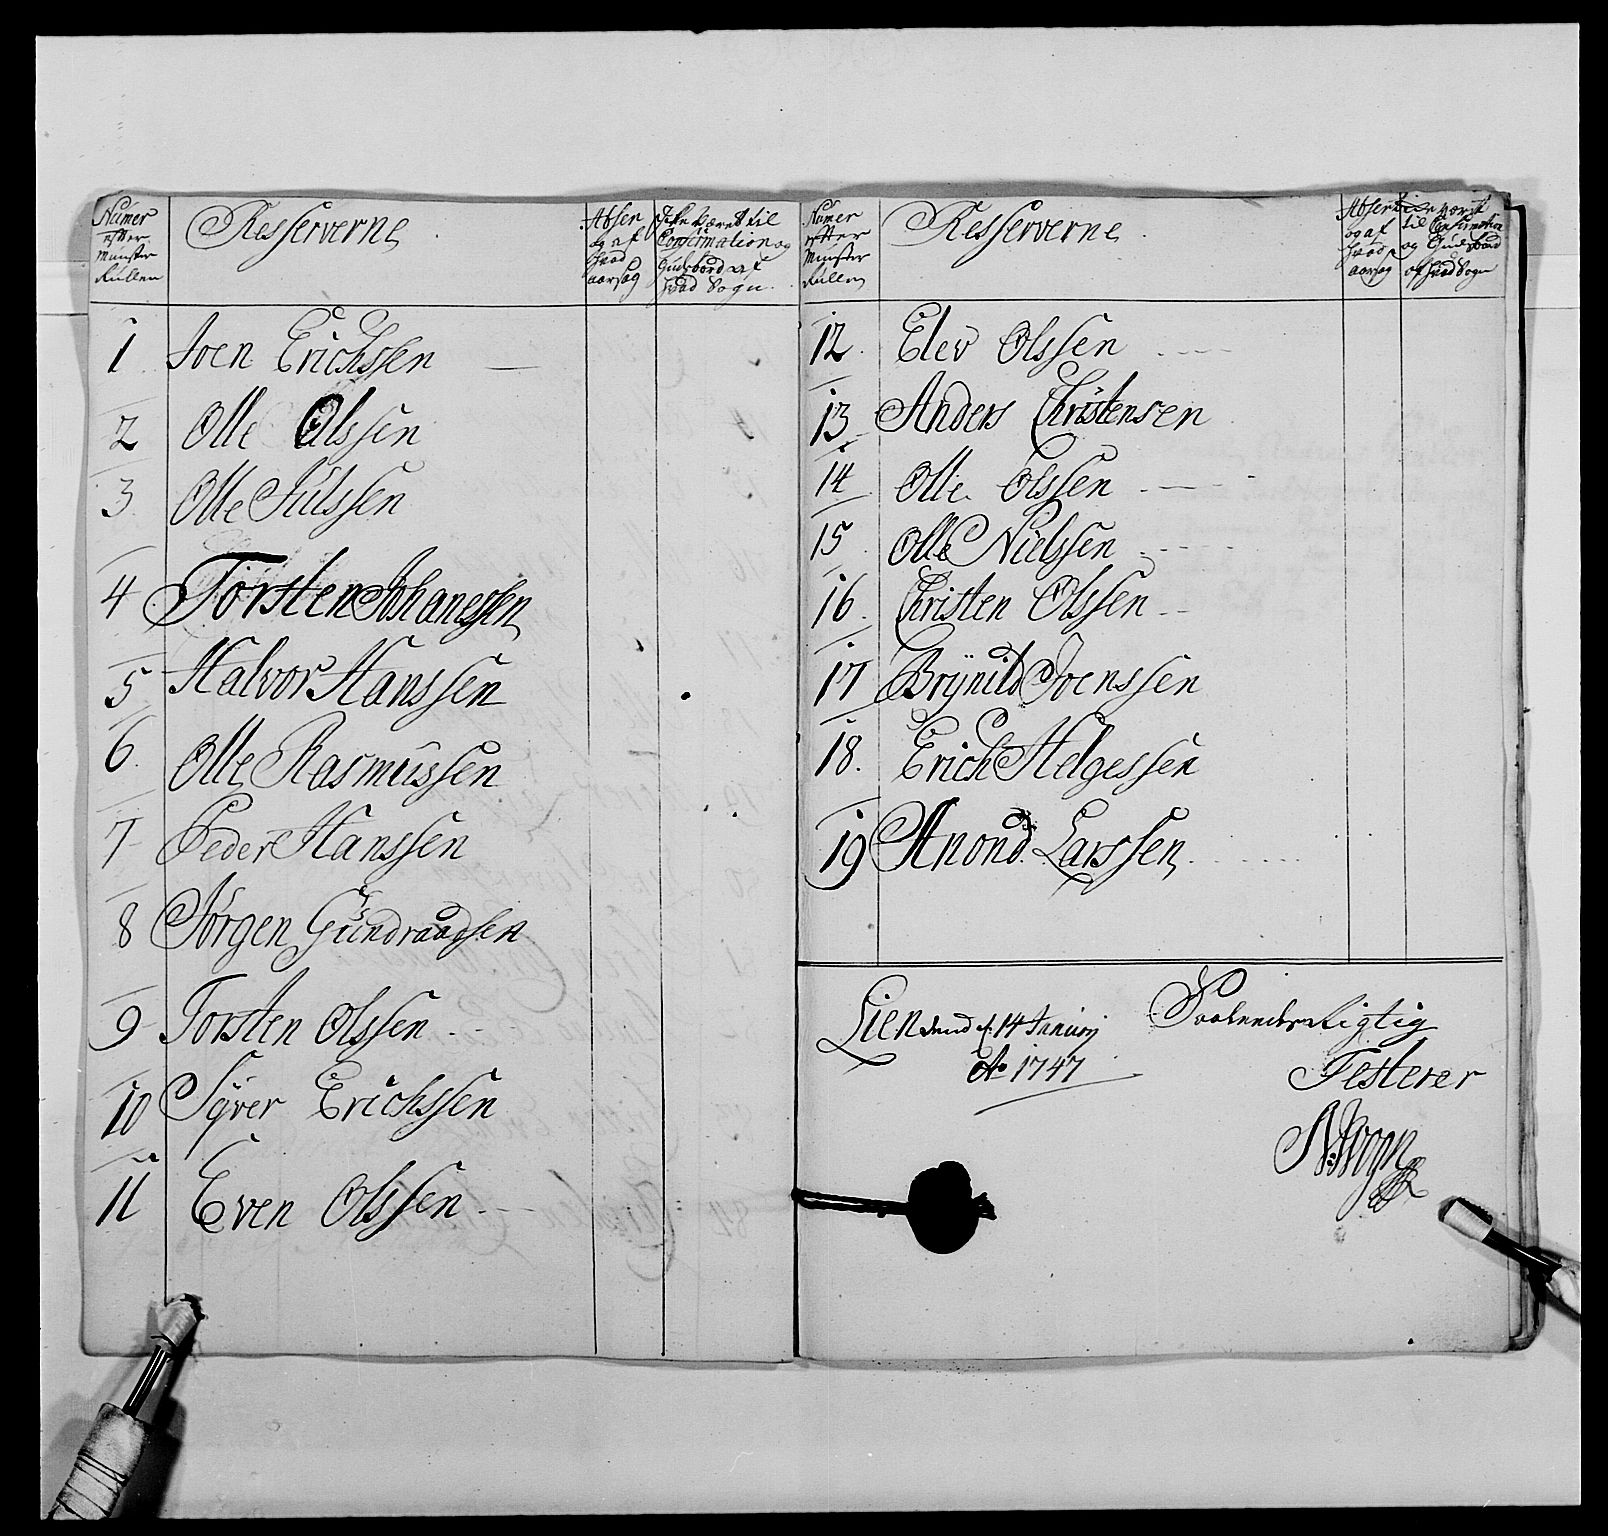 Numer
efter
Munster
Rullen
Resserverne
Absen
og af
hvad
aarsag
Icke været til
Confirmation og
Gudsbord af
hvad Sogn
1 Joen Erichssen
2 Olle Olssen
3 Olle Julssen
4 Torsten Johanessen
5 Halvor Hanssen
6. Olle Rasmussen
7 Peder Hanssen
8 Jørgen Gundraadsen
9 Torsten Olssen
10 Syver Erichssen
11 Even Olssen
Numer
efter
Munster
Rullen
Resserverne
Absen
og af
hvad
aarsag
Icke været
til Confirmation
og Gudsbord
af hvad Sogn
12. Elev Olssen
13 Anders Christensen
14 Olle Olssen
15 Olle Nielssen
16. Christen Olssen
17 Brynild Joenssen
18. Erich Helgessen
19 Anond Larssen
Lien dend 14 Januarj
Ao 1747
Rigtig
Testerer